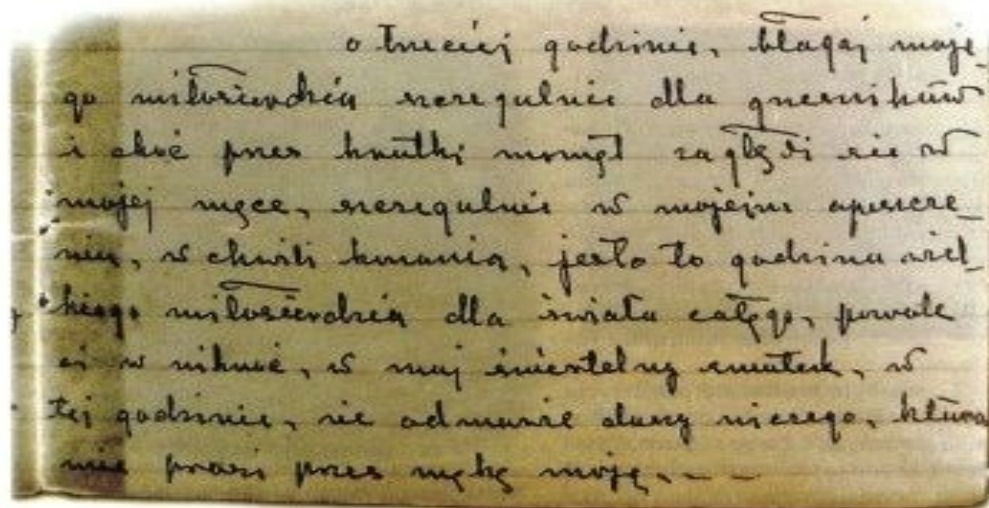 o trzeciej godzinie, błagaj moje-
go miłosierdzia szczegulnie dla grzesznikuw
i choć przes krutki moment zagłębi sie w
mojej męce, szczegulnie w mojejm opuszcze-
niu, w chwili konania, jesto to godzina wiel-
kiego miłosierdzia dla świata całego, pozwole
ci w niknąć, w muj śmiertelny smutek, w
tej godzinie, nie odmuwie duszy niczego, ktura
mie prosi przes mękę moję, - -